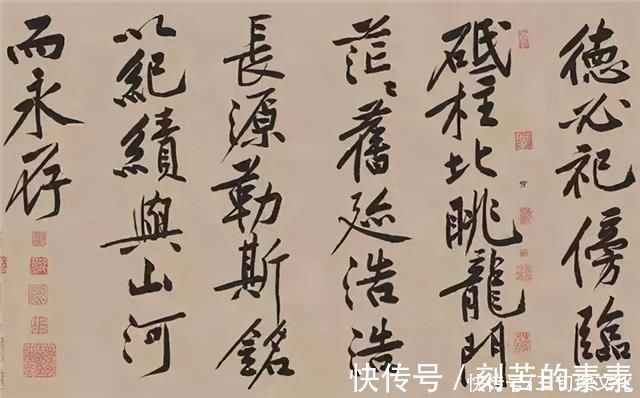 德必祀傍臨
砥柱北眺龍門
茫〻舊迹浩浩
長源勒斯銘
以紀績與山河
而永存
快传号 / 刻苦的